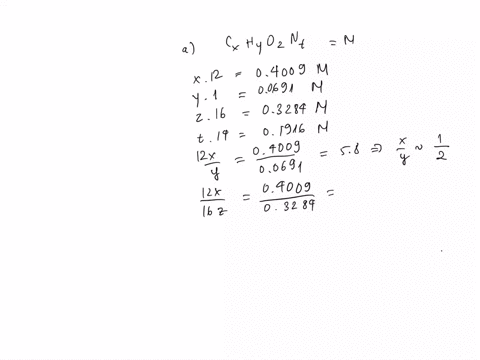 a) CxHyO2Nt = M
x.12 = 0.4009 M
y.1 = 0.0691 M
z.16 = 0.3284 M
t.14 = 0.1916 M
12x/y = 0.4009/0.0691 = 5.8 ⇒ x/y ~ 1/2
12x/16z = 0.4009/0.3284 =